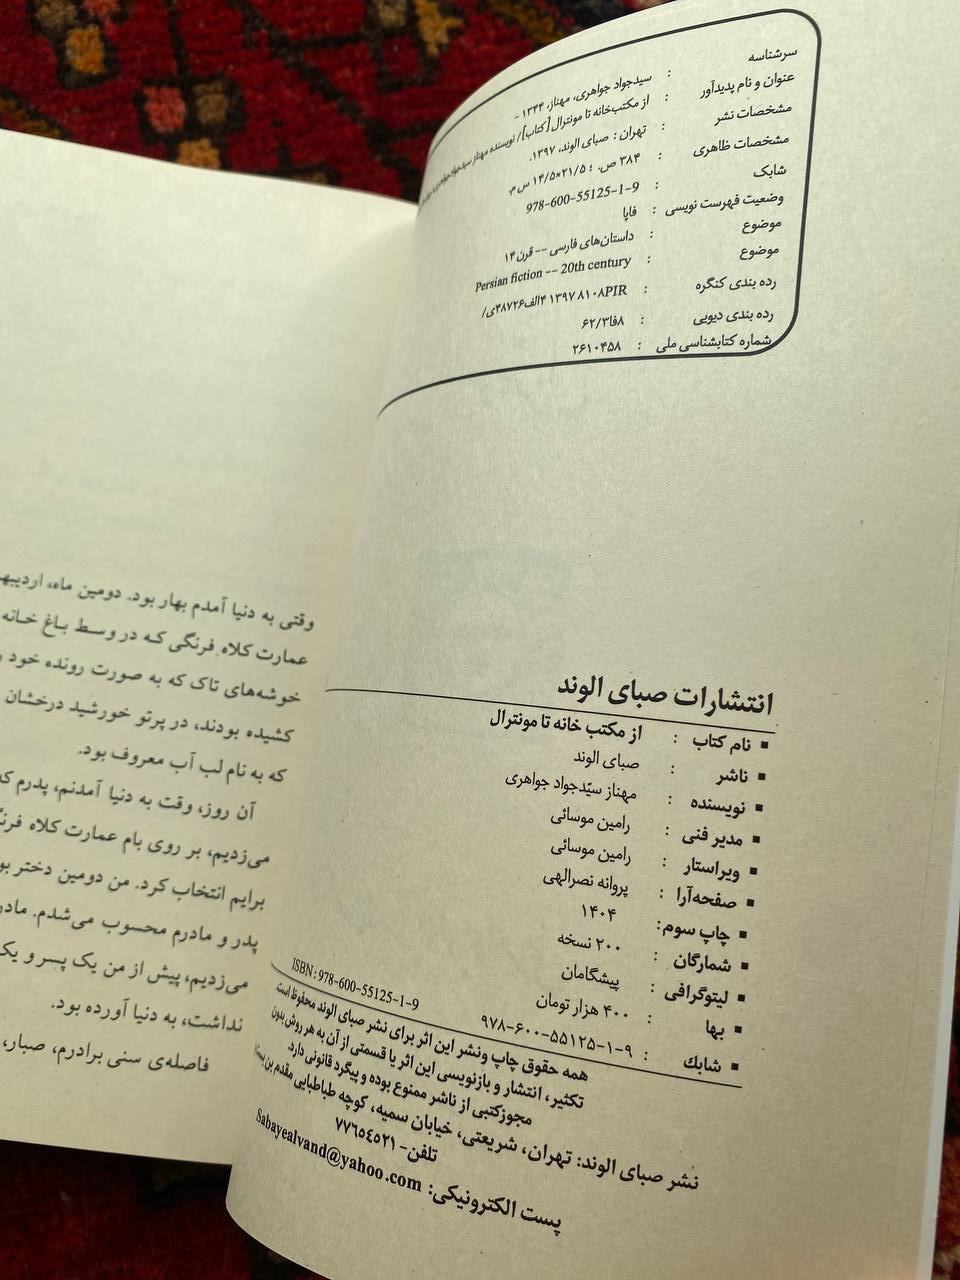 سرشناسه : سیدجواد جواهری، مهناز، ۱۳۴۴ -
عنوان و نام پدیدآور : از مکتب‌خانه تا مونترال [کتاب]/ نویسنده مهناز سیدجواد جواهری
مشخصات نشر : تهران: صبای الوند، ۱۳۹۷.
مشخصات ظاهری : ۳۸۴ ص. ؛ ۲۱/۵×۱۴/۵ س م.
شابک : 978-600-55125-1-9
وضعیت فهرست نویسی : فاپا
موضوع : داستان‌های فارسی -- قرن ۱۴
موضوع : Persian fiction -- 20th century
رده بندی کنگره : ۸۱۰۸PIR ۱۳۹۷ ۴الف۴۸۷۲۶ی/
رده بندی دیویی : ۸فا۶۲/۳
شماره کتابشناسی ملی : ۲۶۱۰۴۵۸
انتشارات صبای الوند
▪ نام کتاب : از مکتب خانه تا مونترال
▪ ناشر : صبای الوند
▪ نویسنده : مهناز سیّدجواد جواهری
▪ مدیر فنی : رامین موسائی
▪ ویراستار : رامین موسائی
▪ صفحه‌آرا : پروانه نصرالهی
▪ چاپ سوم: ۱۴۰۴
▪ شمارگان : ۲۰۰ نسخه
▪ لیتوگرافی : پیشگامان
▪ بها : ۴۰۰ هزار تومان
▪ شابك : ۹۷۸-۶۰۰-۵۵۱۲۵-۱-۹
ISBN: 978-600-55125-1-9
همه حقوق چاپ ونشر این اثر برای نشر صبای الوند محفوظ است.
تکثیر، انتشار و بازنویسی این اثر یا قسمتی از آن به هر روش بدون
مجوزکتبی از ناشر ممنوع بوده و پیگرد قانونی دارد.
نشر صبای الوند: تهران، شریعتی، خیابان سمیه، کوچه طباطبایی مقدم
تلفن- ۷۷۶۵۴۵۲۱
پست الکترونیکی: Sabayealvand@yahoo.com
وقتی به دنیا آمدم بهار بود. دومین ماه،
عمارت کلاه فرنگی که در وسط باغ خانه
خوشه‌های تاک که به صورت رونده خود
کشیده بودند، در پرتو خورشید درخشان
که به نام لب آب معروف بود.
آن روز، وقت به دنیا آمدنم، پدرم که
می‌زدیم، بر روی بام عمارت کلاه
برایم انتخاب کرد. من دومین دختر
پدر و مادرم محسوب می‌شدم.
می‌زدیم، پیش از من یک پسر و یک
نداشت، به دنیا آورده بود.
فاصله‌ی سنی برادرم، صبار،